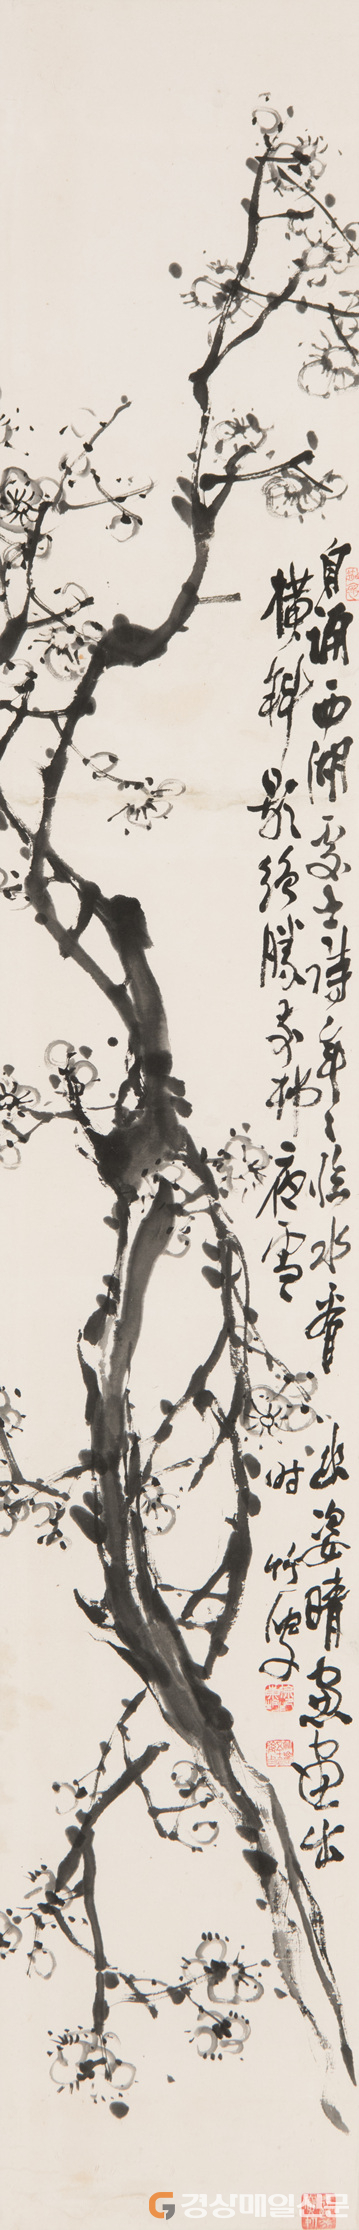 自誦西湖處士詩年々臨水看幽姿晴窓畫出
橫斜影絶勝前村夜雪時 竹
경상매일신문